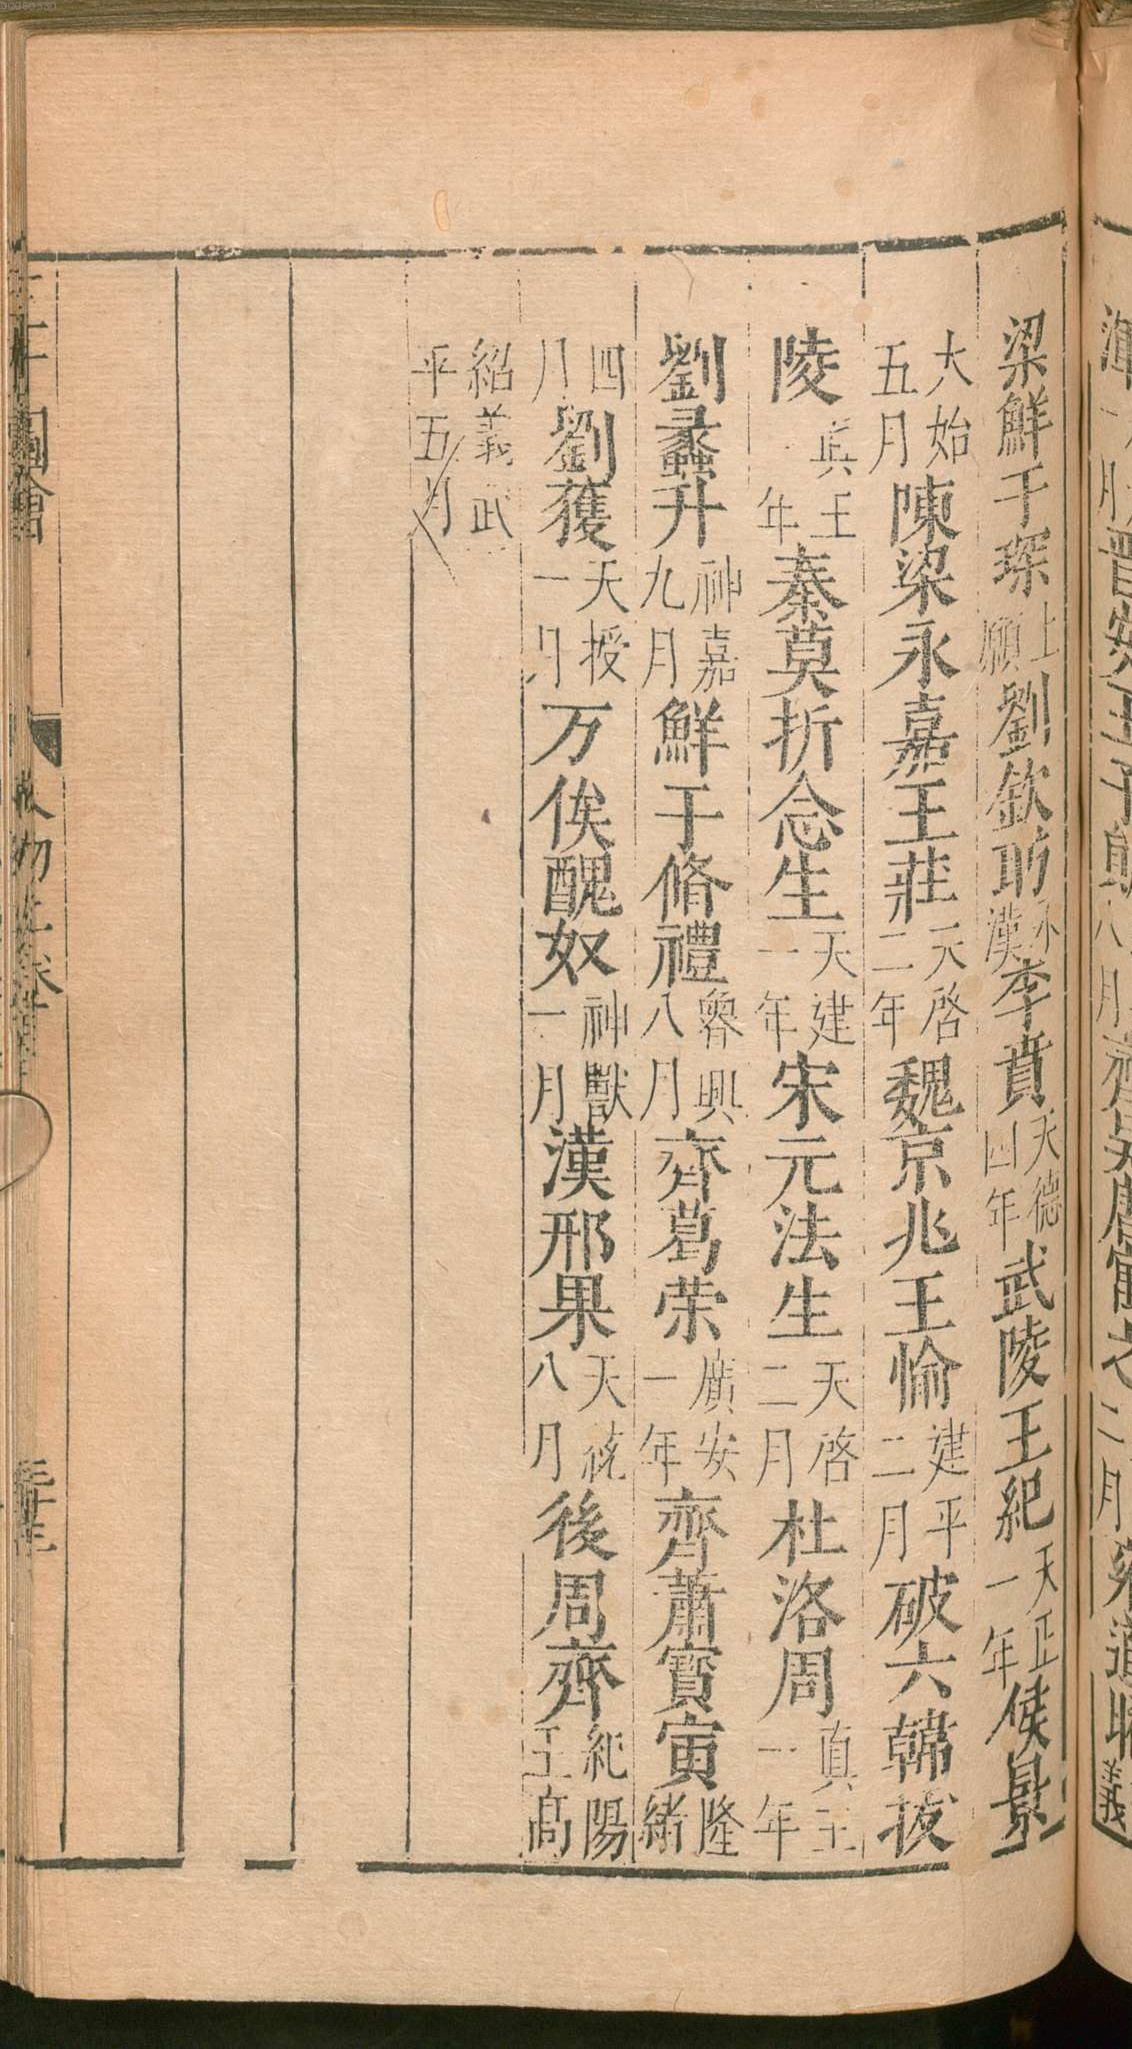 梁鮮于琛上願劉敬躬永漢李賁天德四年武陵王紀天正一年侯景
大始五月陳梁永嘉王莊天啓二年魏京兆王愉建平二月破六韓拔
陵真王年秦莫折念生天建一年宋元法生天啓二月杜洛周真王一年
劉蠡升神嘉九月鮮于脩禮魯興八月齊葛荣廣安一年齊蕭寳寅隆緒
四月劉獲天授一月万俟醜奴神獸一月漢邢果天統八月後周齊范陽王高
紹義武平五月
三才圖會
人物三卷